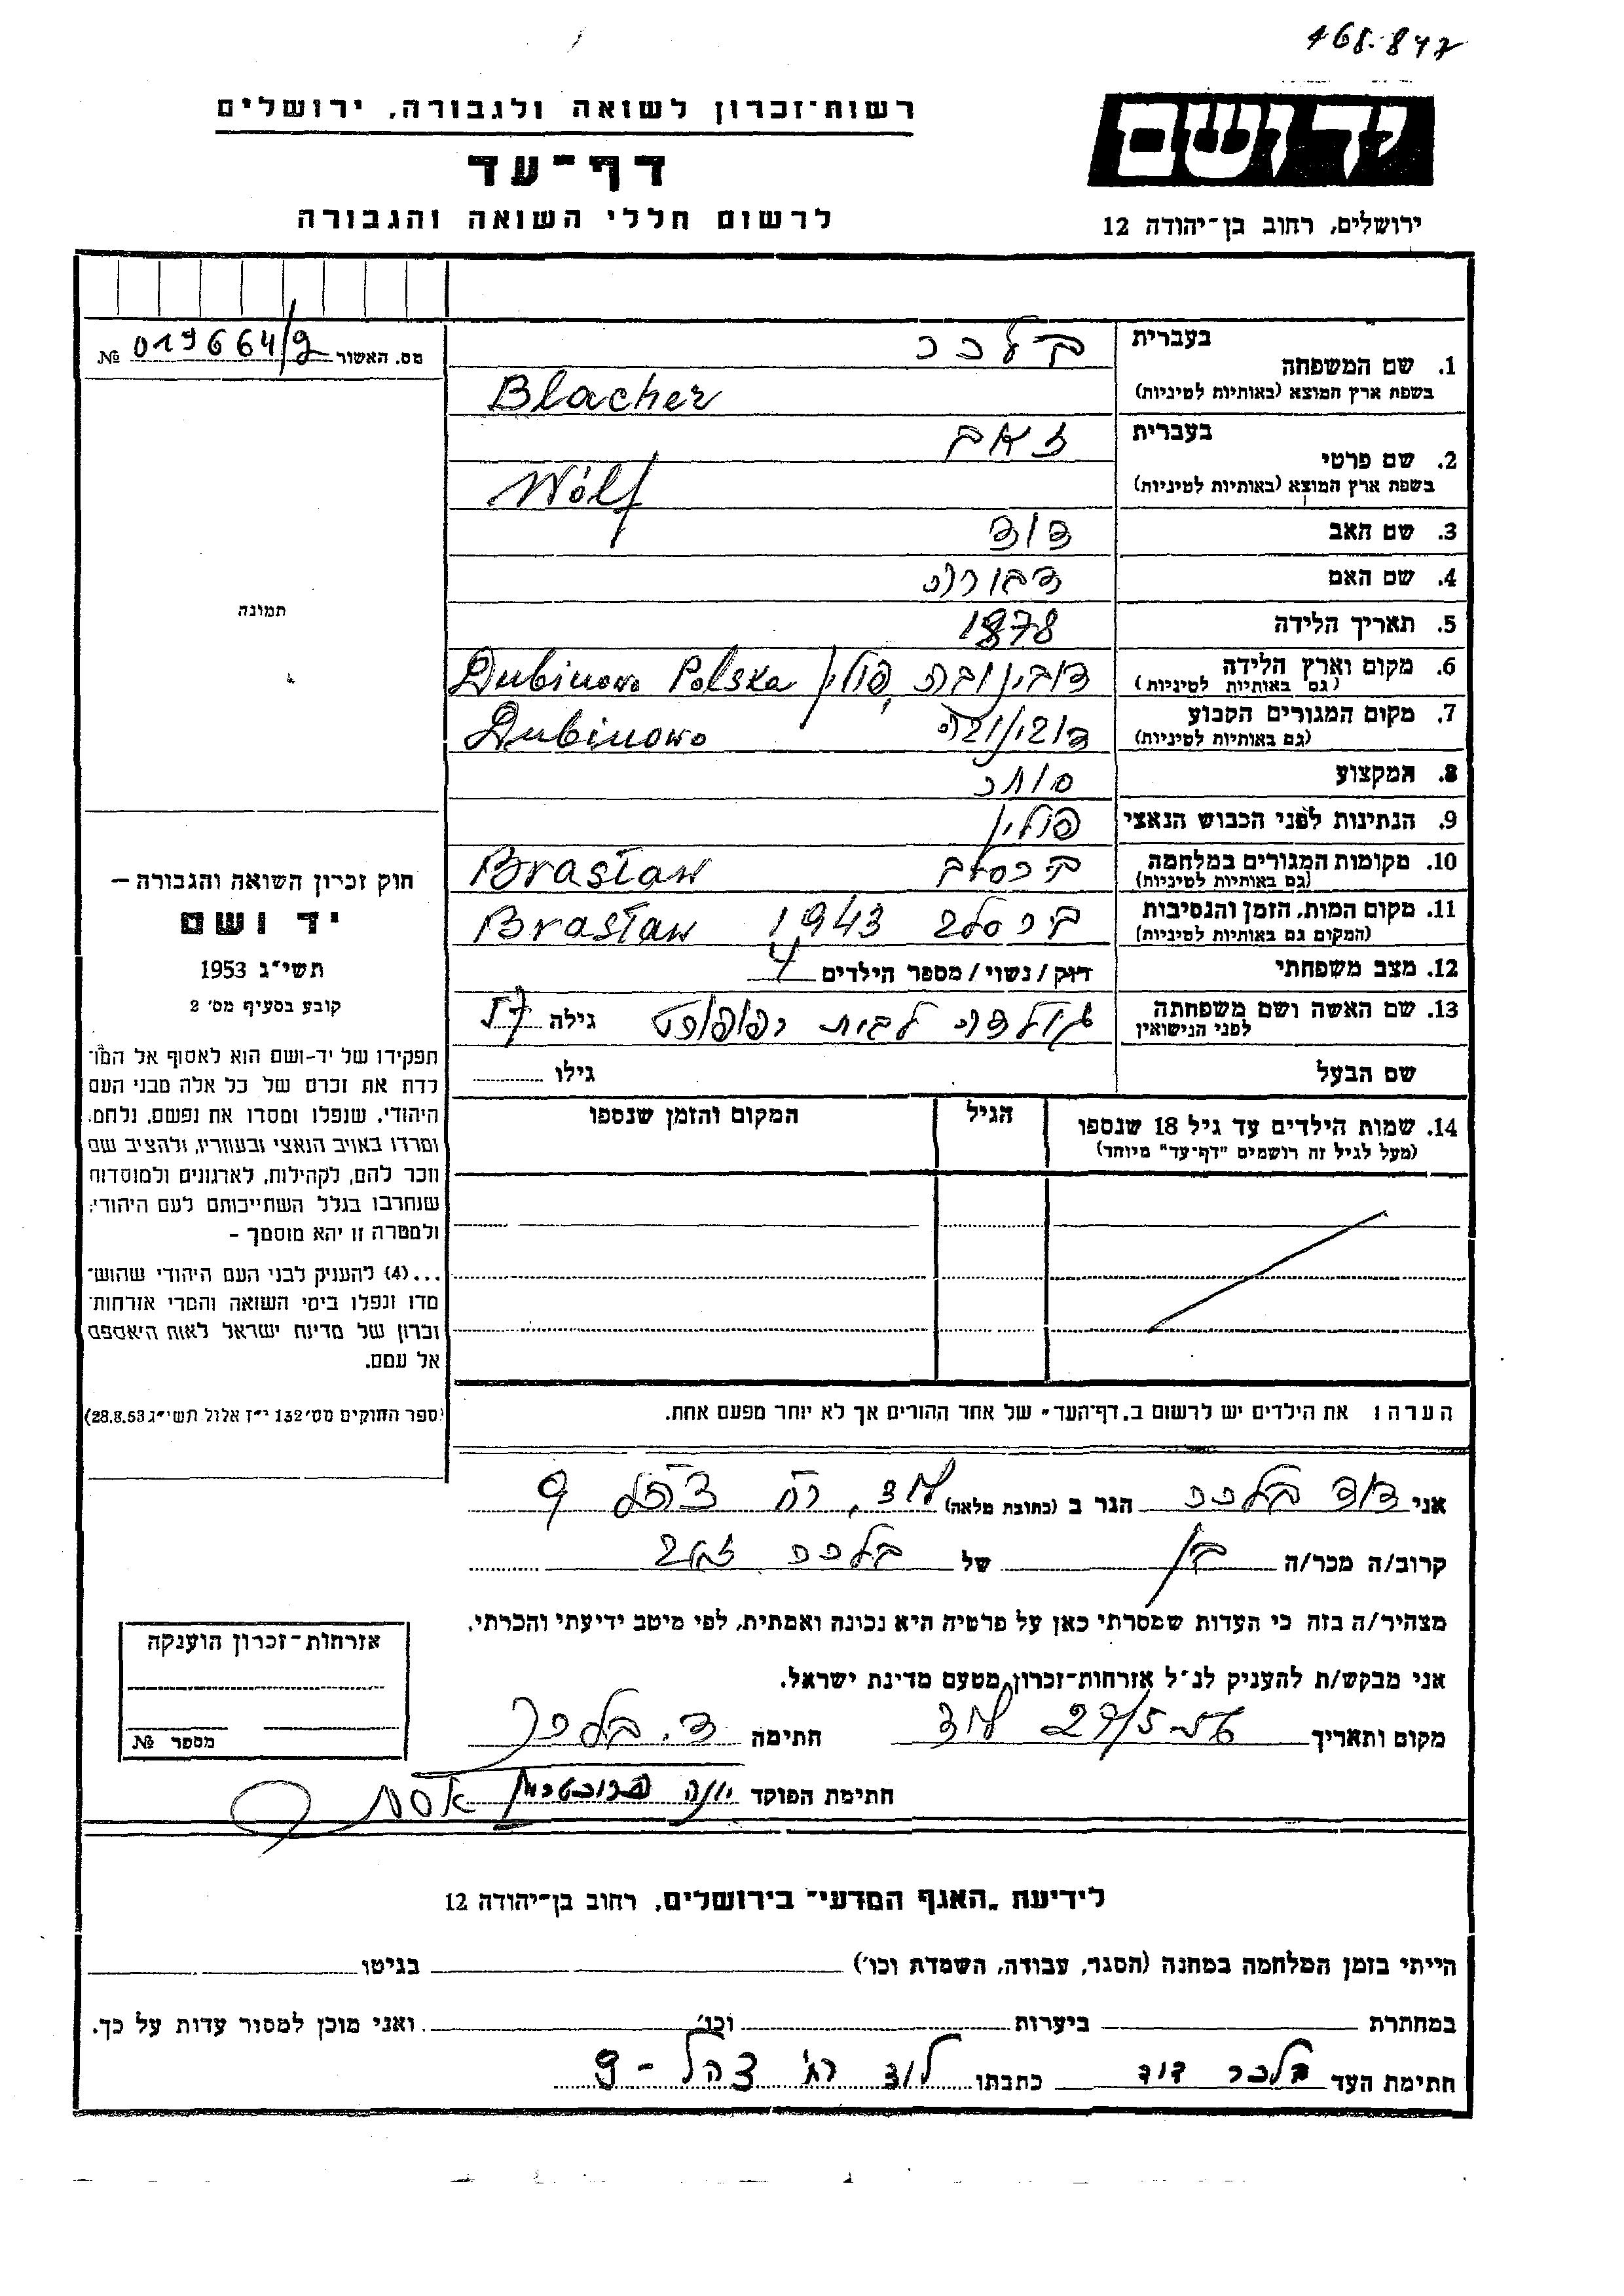 168.842
רשות־זכרון לשואה ולגבורה, ירושלים
יד ושם
דף־עד
לרשום חללי השואה והגבורה
ירושלים, רחוב בן־יהודה 12
מס. האשור 019664/9 №
1. שם המשפחה
בעברית בלכר
בשפת ארץ המוצא (באותיות לטיניות) Blacher
2. שם פרטי
בעברית זאב
בשפת ארץ המוצא (באותיות לטיניות) Wólf
3. שם האב דוד
4. שם האם דבורה
5. תאריך הלידה 1878
6. מקום וארץ הלידה (גם באותיות לטיניות) דובינובה, פולין Dubinowo Polska
7. מקום המגורים הקבוע (גם באותיות לטיניות) דובינובה Dubinowo
8. המקצוע סוחר
9. הנתינות לפני הכבוש הנאצי פולין
10. מקומות המגורים במלחמה (גם באותיות לטיניות) ברסלב Brasław
11. מקום המות, הזמן והנסיבות (המקום גם באותיות לטיניות) ברסלב 1943 Brasław
12. מצב משפחתי רווק/נשוי/מספר הילדים 4
13. שם האשה ושם משפחתה לפני הנישואין גולדה לבית רפופורט גילה 57
שם הבעל גילו
14. שמות הילדים עד גיל 18 שנספו
(מעל לגיל זה רושמים "דף־עד" מיוחד)
הגיל
המקום והזמן שנספו
הערה: את הילדים יש לרשום ב„דף־העד" של אחד ההורים אך לא יותר מפעם אחת.
תמונה
חוק זכרון השואה והגבורה —
יד ושם
תשי"ג 1953
קובע בסעיף מס' 2
תפקידו של יד-ושם הוא לאסוף אל המו־
לדת את זכרם של כל אלה מבני העם
היהודי, שנפלו ומסרו את נפשם, נלחמו
ומרדו באויב הנאצי ובעוזריו, ולהציב שם
וזכר להם, לקהילות, לארגונים ולמוסדות
שנחרבו בגלל השתייכותם לעם היהודי;
ולמטרה זו יהא מוסמך –
...(4) להעניק לבני העם היהודי שהוש־
מדו ונפלו בימי השואה והמרי אזרחות־
זכרון של מדינת ישראל לאות היאספם
אל עמם.
(ספר החוקים מס' 132 י"ז אלול תשי"ג 28.8.53)
אני דוד בלכר הגר ב (כתובת מלאה) לוד, רח צהל 9
קרוב/ה מכר/ה בן של בלכר זאב
מצהיר/ה בזה כי העדות שמסרתי כאן על פרטיה היא נכונה ואמתית, לפי מיטב ידיעתי והכרתי.
אני מבקש/ת להעניק לנ"ל אזרחות־זכרון מטעם מדינת ישראל.
מקום ותאריך לוד 27/5-56 חתימה ד. בלכר
חתימת הפוקד יונה
אזרחות־זכרון הוענקה
מספר №
לידיעת „האגף המדעי" בירושלים, רחוב בן־יהודה 12
הייתי בזמן המלחמה במחנה (הסגר, עבודה, השמדת וכו') בגיטו
במחתרת ביערות וכו' ואני מוכן למסור עדות על כך.
חתימת העד בלכר דוד כתבתו לוד רח' צהל - 9